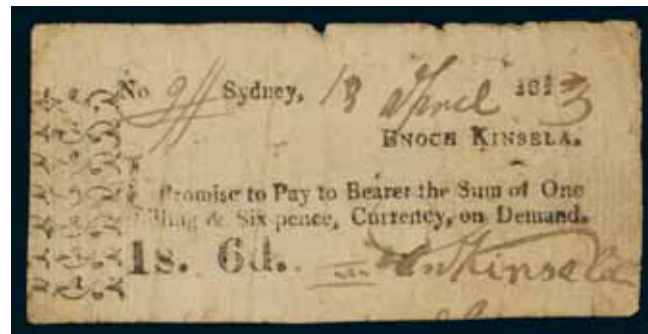 No Sydney, 13 April 1813
ENOCH KINSELA.
Promise to Pay to Bearer the Sum of One
Shilling & Six pence, Currency, on Demand.
1s. 6d. En Kinsela